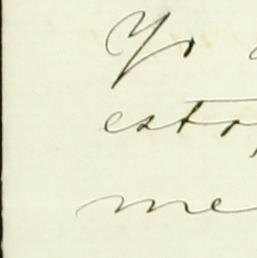 Yo
esto,
me